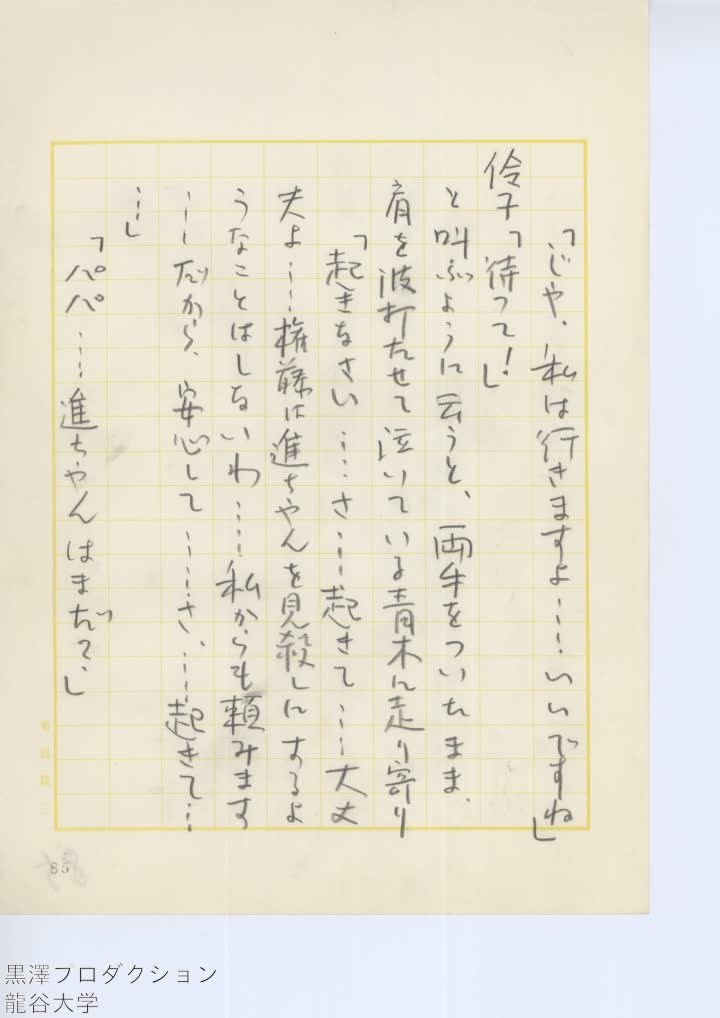 「じや、私は行きますよ……いいですね」
伶子「待って！」
と叫ぶように云うと、両手をついたまま、
肩を波打たせて泣いている青木に走り寄り
「起きなさい……さ……起きて……大丈
夫よ……権藤は進ちやんを見殺しにするよ
うなことはしないわ……私からも頼みます
……だから、安心して……さ、……起きて…
…」
「パパ……進ちやんはまだ？」
85
黒澤プロダクション
龍谷大学